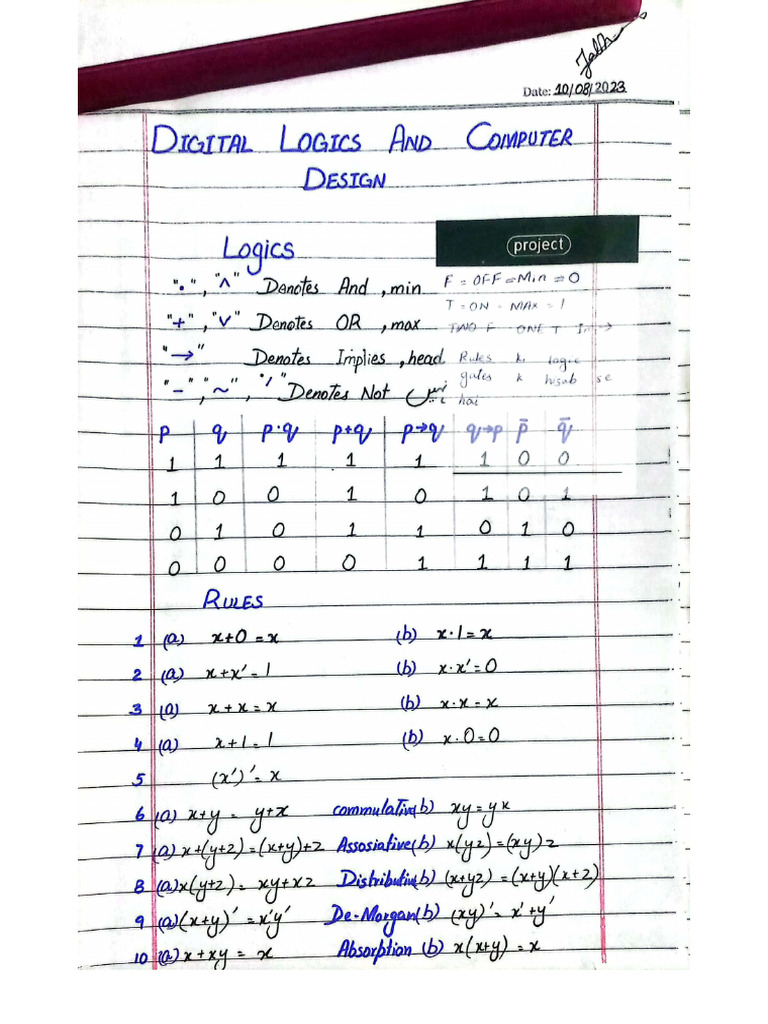 Date: 10/08/2023
DIGITAL LOGICS AND COMPUTER
DESIGN
project
Logics
"•", "^" Denotes And, min F = OFF = Min = 0
T = ON = MAX = 1
"+", "v" Denotes OR, max TWO F ONE T
"→" Denotes Implies, head Rules k logic
"-", "~", "/" Denotes Not نہیں gates k hisab se
hai
p q p·q p+q p→q q→p p̄ q̄
1 1 1 1 1 1 0 0
1 0 0 1 0 1 0 1
0 1 0 1 1 0 1 0
0 0 0 0 1 1 1 1
RULES
1 (a) x+0=x (b) x·1=x
2 (a) x+x'=1 (b) x·x'=0
3 (a) x+x=x (b) x·x=x
4 (a) x+1=1 (b) x·0=0
5 (x')'=x
6 (a) x+y = y+x commulative(b) xy=yx
7 (a) x+(y+z)=(x+y)+z Assosiative(b) x(yz)=(xy)z
8 (a)x(y+z)= xy+xz Distributive(b) (x+yz)=(x+y)(x+z)
9 (a)(x+y)' =x'y' De-Morgan(b) (xy)'= x'+y'
10 (a)x+xy = x Absorption (b) x(x+y)=x